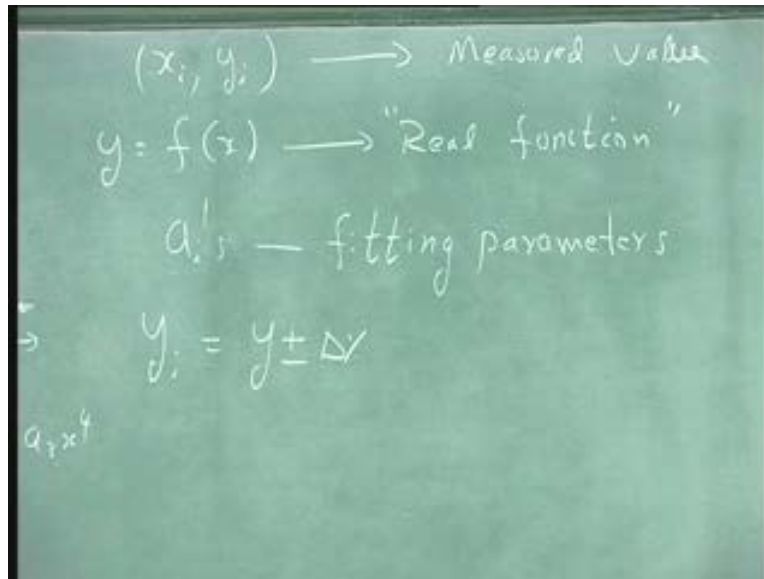 (xᵢ, yᵢ) ⟶ Measured value
y = f(x) ⟶ "Real function"
aᵢ's — fitting parameters
→ yᵢ = y ± Δy